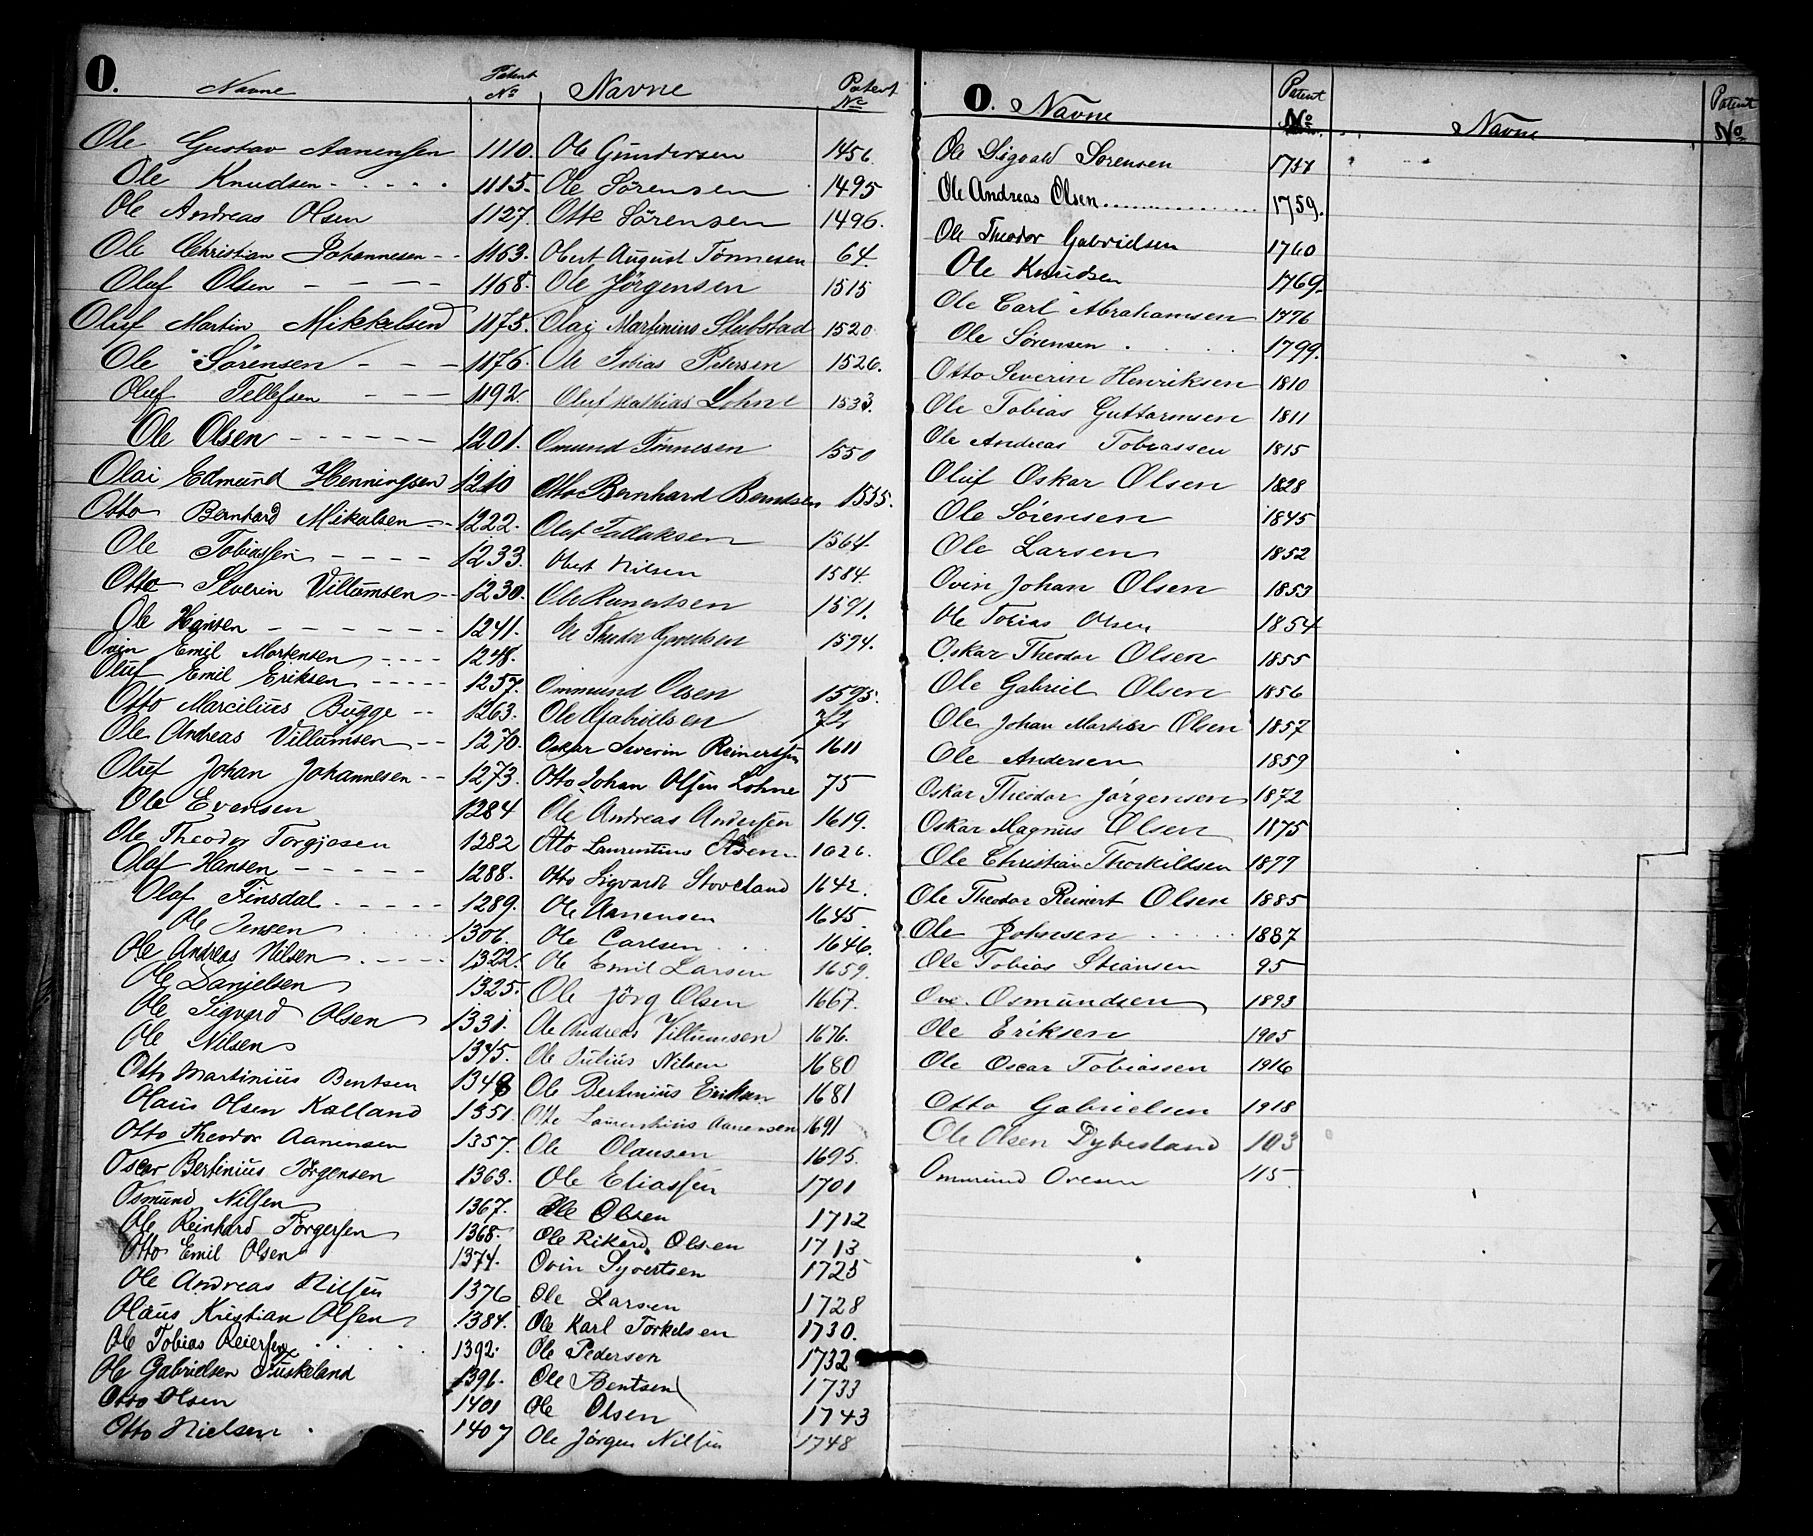 O. Navne Patent No
Ole Gustav Aanensen 1110.
Ole Knudsen - - - - - 1115.
Ole Andreas Olsen 1127.
Ole Christian Johannesen - - 1163.
Oluf Olsen - - - - 1168.
Oluf Martin Mikkelsen 1175.
Ole Sørensen - - - 1176.
Oluf Tellefsen - - - 1192.
Ole Olsen - - - - - - 1201.
Olai Edmund Henningsen 1210
Otto Bernhard Mikalsen - 1222.
Ole Tobiassen - - - - 1233.
Otto Severin Villumsen - - 1230.
Ole Hansen - - - - - - 1241.
Ovin Emil Mortensen - - - - 1248.
Oluf Emil Eriksen - - - - - 1257.
Otto Marcilius Bugge - - 1263.
Ole Andreas Villumsen - - 1270.
Oluf Johan Johannesen - - 1273.
Ole Evensen 1284
Ole Theodor Torgjosen 1282
Olaf Hansen - - - - - 1288.
Olaf Finsdal - - - - - 1289.
Ole Jensen 1306.
Ole Andreas Nilsen - - - - - 1322.
Ole Danielsen 1325.
Ole Sigvard Olsen 1331.
Ole Nilsen 1345.
Otto Martinius Bentsen 1348
Olaus Olsen Kalland 1351.
Otto Theodor Aanensen 1357.
Oscar Bertinius Jørgensen 1363.
Osmund Nilsen 1367.
Ole Reinhard Torgersen 1368.
Otto Emil Olsen 1374.
Ole Andreas Nilsen 1376
Olaus Kristian Olsen 1384.
Ole Tobias Reiersen 1392.
Ole Gabrielsen Fuskeland 1396.
Otto Olsen 1401
Otto Nielsen 1407
Navne Patent No
Ole Gundersen 1456.
Ole Sørensen 1495
Otte Sörensen 1496.
Obert August Tønnesen 64.
Ole Jørgensen 1515
Olai Martinius Stubstad 1520
Ole Tobias Petersen 1526.
Oluf Mathias Lohne 1533.
Omund Tønnesen 1550
Otto Bernhard Berntsen 1555.
Oluf Tallaksen 1564.
Obert Nilsen 1584.
Ole Reinertsen 1591.
Ole Theodor 1594.
Ommund Olsen 1595.
Ole Gabrielsen 72
Oskar Severin Reinertsen 1611
Otto Johan Olsen Lohne 75
Ole Andreas Andersen 1619.
Otto Laurentius Olsen 1626.
Otto Sigvardt Stoveland 1642.
Ole Aanensen 1645.
Ole Carlsen . . . 1646.
Ole Emil Larsen 1659.
Ole Jörg Olsen 1667.
Ole Andreas Villumsen 1676.
Ole Julius Nilsen 1680
Ole Bertinius Eriksen 1681
Otte Laurentius Aanensen 1691
Ole Olausen 1695.
Ole Eliassen 1701
Ole Olsen 1712
Ole Rikard Olsen 1713
Ovin Syvertsen 1725
Ole Larsen 1728
Ole Karl Torkelsen 1730.
Ole Pedersen 1732
Ole Bentsen 1733
Ole Olsen 1743
Ole Jørgen Nilsen 1748
O. Navne Patent No
Ole Sigvald Sørensen 1757
Ole Andreas Olsen................ 1759.
Ole Theodor Gabrielsen 1760
Ole Knudsen 1769.
Ole Carl Abrahamsen 1776
Ole Sørensen . . . . 1799.
Otto Severin Henriksen 1810
Ole Tobias Guttormsen 1811
Ole Andreas Tobiassen 1815
Oluf Oskar Olsen 1828
Ole Sörensen 1845
Ole Larsen 1852
Ovin Johan Olsen 1853
Ole Tobias Olsen 1854
Oskar Theodor Olsen 1855
Ole Gabriel Olsen 1856
Ole Johan Martin Olsen 1857
Ole Andersen 1859
Oskar Theodor Jörgensen 1872
Oskar Magnus Olsen 1875
Ole Christian Thorkildsen 1877
Ole Theodor Reinert Olsen 1885
Ole Johnsen . . . . . 1887
Ole Tobias Stiansen 95
Ove Osmundsen 1893
Ole Eriksen 1905
Ole Oscar Tobiassen 1916
Otto Gabrielsen 1918
Ole Olsen Dybesland 103
Ommund Ovesen 115
Navne Patent No